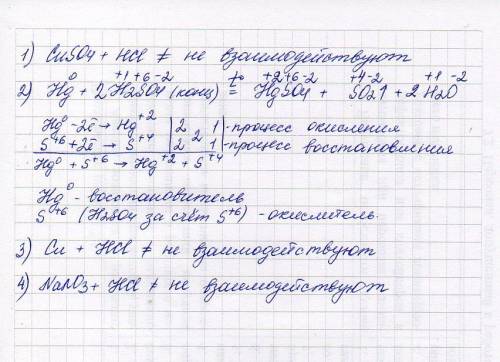 1) CuSO4 + HCl ≠ не взаимодействуют
0 +1 +6 -2 t° +2 +6 -2 +4 -2 +1 -2
2) Hg + 2H2SO4 (конц) = HgSO4 + SO2↑ + 2H2O
Hg⁰ - 2ē → Hg⁺² | 2 | 1 | - процесс окисления
2
S⁺⁶ + 2ē → S⁺⁴ | 2 | 1 | - процесс восстановления
Hg⁰ + S⁺⁶ → Hg⁺² + S⁺⁴
Hg⁰ - восстановитель
S⁺⁶ (H2SO4 за счёт S⁺⁶) - окислитель.
3) Cu + HCl ≠ не взаимодействуют
4) NaNO3 + HCl ≠ не взаимодействуют